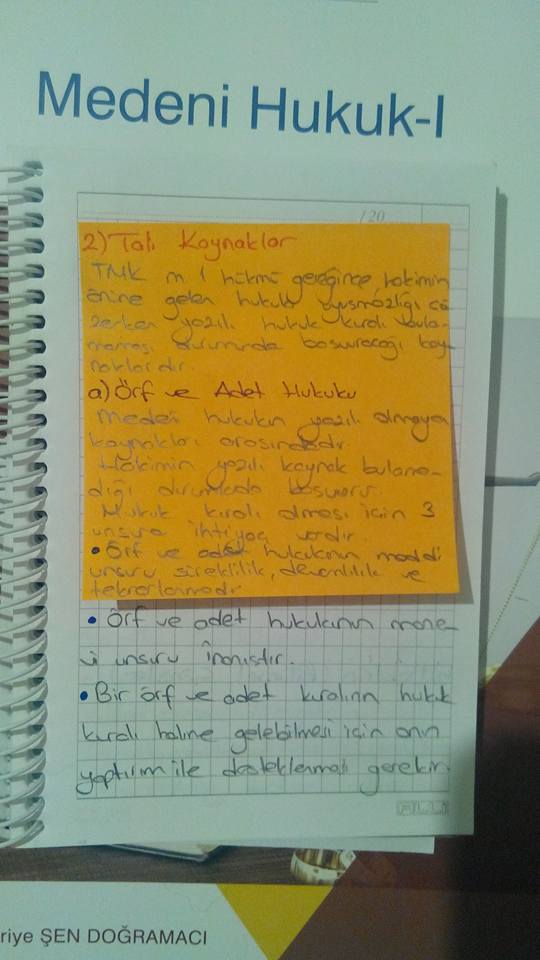 Medeni Hukuk-I
/20
2) Tali Kaynaklar
TMK m. 1 hükmü gereğince, hakimin
önüne gelen hukuk uyuşmazlığı çö
zerken yazılı hukuk kuralı bula-
maması durumunda başvuracağı kay
naklardır.
a) Örf ve Adet Hukuku
Medeni hukukun yazılı olmayan
kaynakları arasındadır.
Hakimin yazılı kaynak bulama-
dığı durumlarda başvurur.
Hukuk kuralı olması için 3
unsura ihtiyaç vardır
• Örf ve adet hukukunun maddi
unsuru süreklilik, devamlılık ve
tekrarlanmadır
• Örf ve adet hukukunun mane-
vi unsuru inanıştır.
• Bir örf ve adet kuralının hukuk
kuralı haline gelebilmesi için onun
yaptırım ile desteklenmesi gerekir.
riye ŞEN DOĞRAMACI